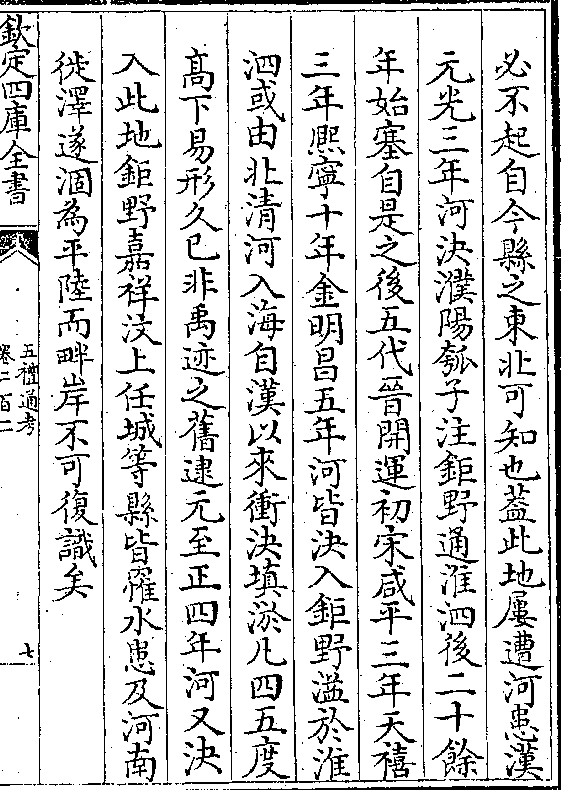 必不起自今縣之東北可知也蓋此地屢遭河患漢
元光三年河決濮陽瓠子注鉅野通淮泗後二十餘
年始塞自是之後五代晉開運初宋咸平三年天禧
三年熈寧十年金明昌五年河皆決入鉅野溢於淮
泗或由北清河入海自漢以來衝決填淤凡四五度
髙下易形久已非禹迹之舊逮元至正四年河又決
入此地鉅野嘉祥汶上任城等縣皆罹水患及河南
徙澤遂涸為平陸而畔岸不可復識矣
欽定四庫全書
五禮通考
卷二百二
七